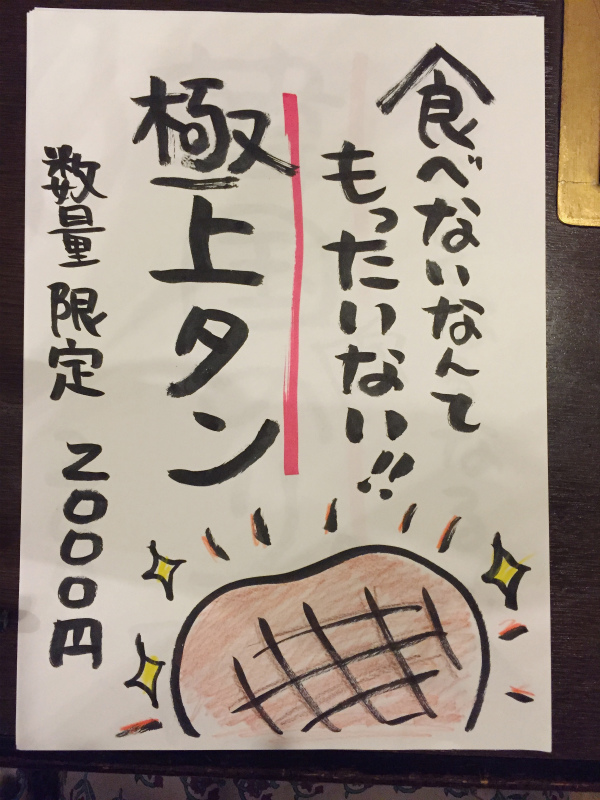 食べないなんて
もったいない!!
極上タン
数量限定 2000円